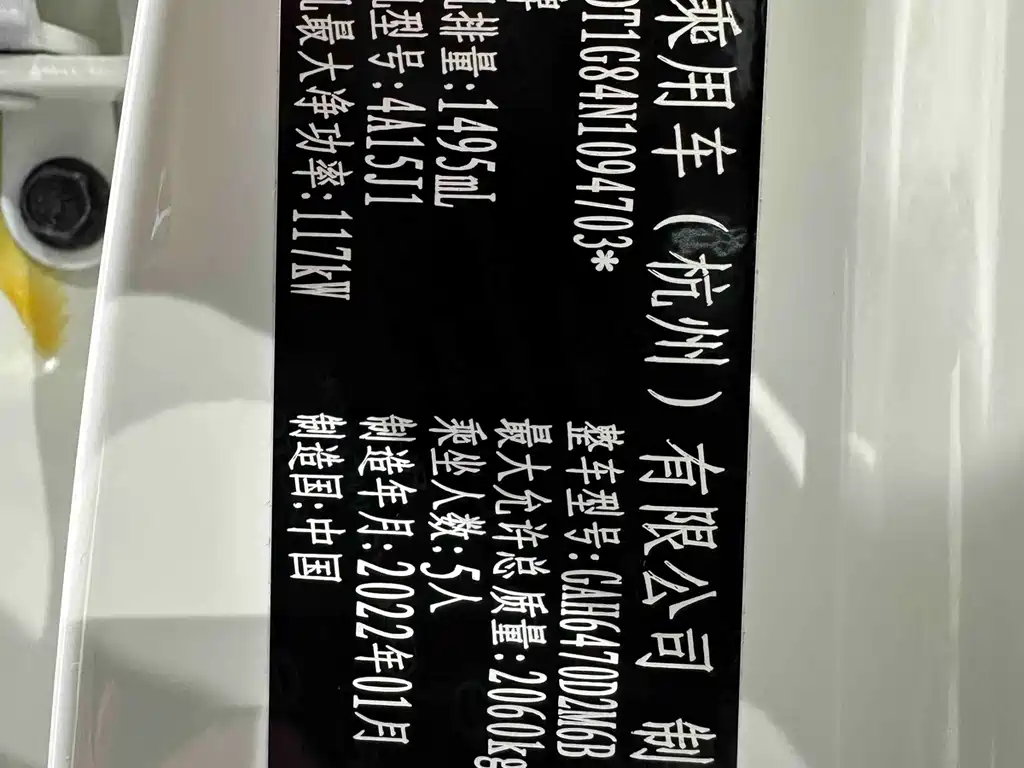 乘用车（杭州）有限公司 制
DT1G84N1094703*
整车型号:GAH6470D2M6B
最大允许总质量:2060kg
排量:1495mL
乘坐人数:5人
型号:4A15J1
制造年月:2022年01月
最大净功率:117kW
制造国:中国